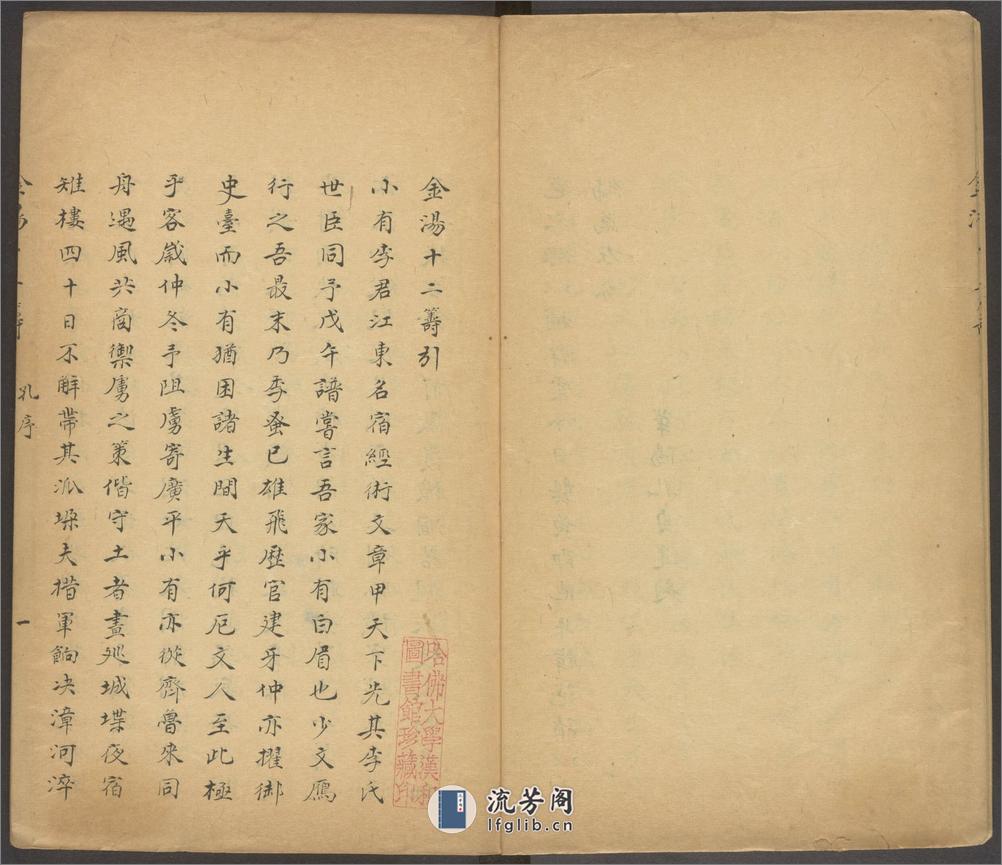 金湯十二籌引
小有李君江東名宿經術文章甲天下先其李氏
世臣同予戊午譜嘗言吾家小有白眉也少文鴈
行之吾最末乃季蚤已雄飛歷官建牙仲亦擢御
史臺而小有猶困諸生間天乎何厄文人至此極
乎客歲仲冬予阻虜寄廣平小有亦從齊魯來同
舟遇風共商禦虜之策偕守土者晝廵城堞夜宿
雉樓四十日不解帶其派垛夫措軍餉决漳河滓
孔序
一
哈佛大學漢和
圖書館珍藏印
流芳阁
lfglib.cn